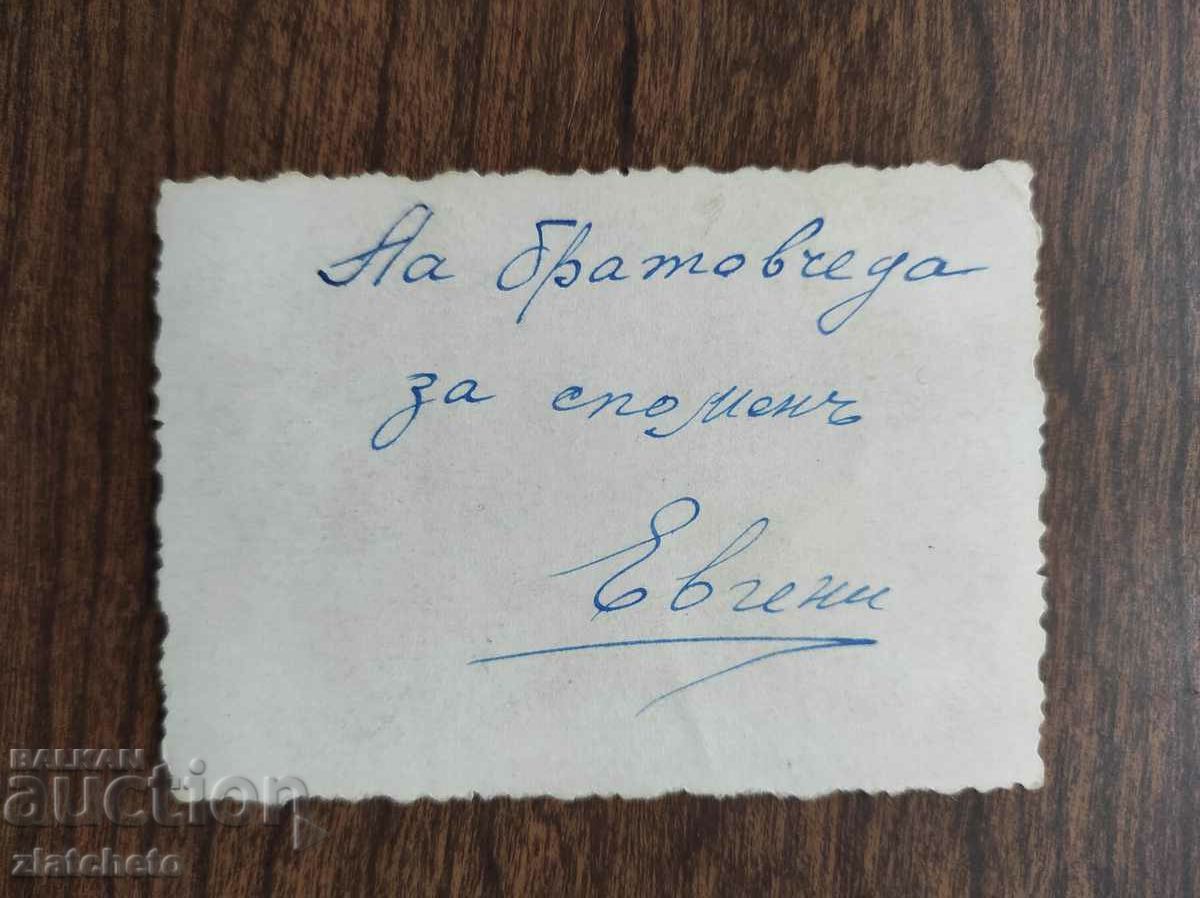 На братовчеда
за споменъ
Евгени
BALKAN
auction
zlatcheto